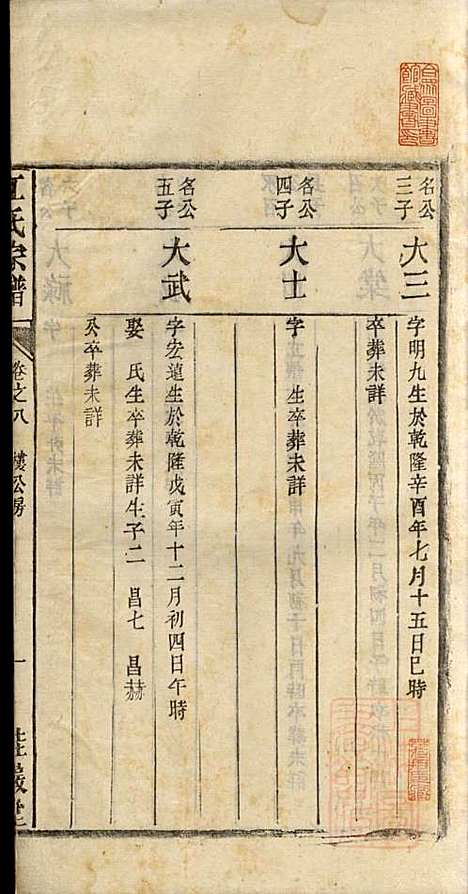 名公三子
大三
字明九生於乾隆辛酉年七月十五日巳時
卒葬未詳
名公四子
大士
字 生卒葬未詳
名公五子
大武
字宏遠生於乾隆戊寅年十二月初四日午時
娶 氏生卒葬未詳生子二 昌七 昌赫
公卒葬未詳
氏宗譜
卷之八 樓公房
一